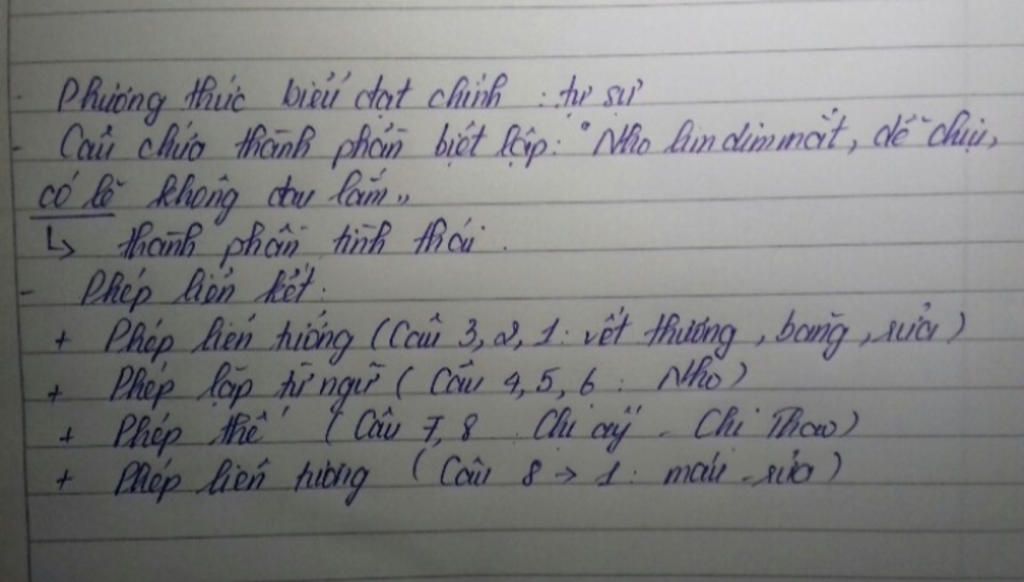 - Phương thức biểu đạt chính : tự sự
- Câu chứa thành phần biệt lập: "Nho lim dim mắt, dễ chịu,
có lẽ không đau lắm"
↳ thành phần tình thái.
- Phép liên kết:
+ Phép liên tưởng (Câu 3, 2, 1: vết thương, băng, sữa)
+ Phép lặp từ ngữ (Câu 4, 5, 6 : Nho)
+ Phép thế (Câu 7, 8 : Chị ấy - Chị Thao)
+ Phép liên tưởng (Câu 8 → 1: máu - sữa)